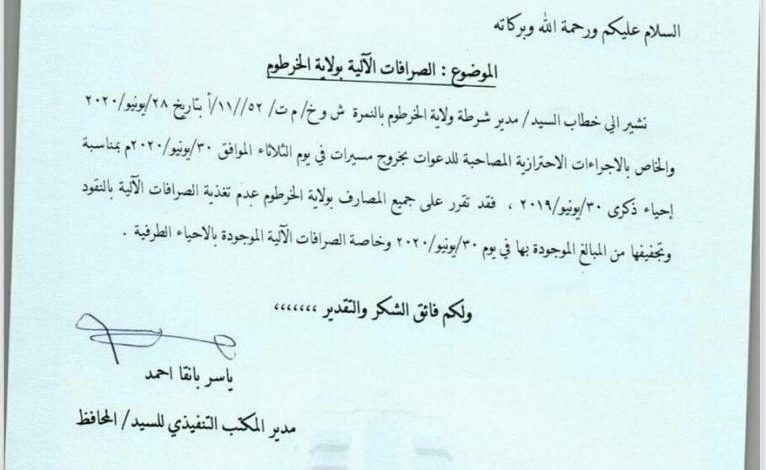 السلام عليكم ورحمة الله وبركاته
الموضوع : الصرافات الآلية بولاية الخرطوم
نشير الي خطاب السيد/ مدير شرطة ولاية الخرطوم بالنمرة ش و خ/ م ت/ ٥٢//١١/أ بتاريخ ٢٨/يونيو/٢٠٢٠
والخاص بالاجراءات الاحترازية المصاحبة للدعوات بخروج مسيرات في يوم الثلاثاء الموافق ٣٠/يونيو/٢٠٢٠م بمناسبة
إحياء ذكرى ٣٠/يونيو/٢٠١٩ ، فقد تقرر على جميع المصارف بولاية الخرطوم عدم تغذية الصرافات الآلية بالنقود
وتجفيفها من المبالغ الموجودة بها في يوم ٣٠/يونيو/٢٠٢٠ وخاصة الصرافات الآلية الموجودة بالاحياء الطرفية .
ولكم فائق الشكر والتقدير ،،،،،،،
ياسر بانقا احمد
مدير المكتب التنفيذي للسيد/ المحافظ